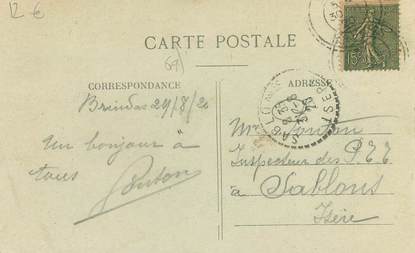 12 €
CARTE POSTALE
69
CORRESPONDANCE
ADRESSE
Brindas 29/8/20
Un bonjour à
tous
Ponton
Mr Ponton
Inspecteur des P.T.T
à Sablons
Isère
SABLONS
15